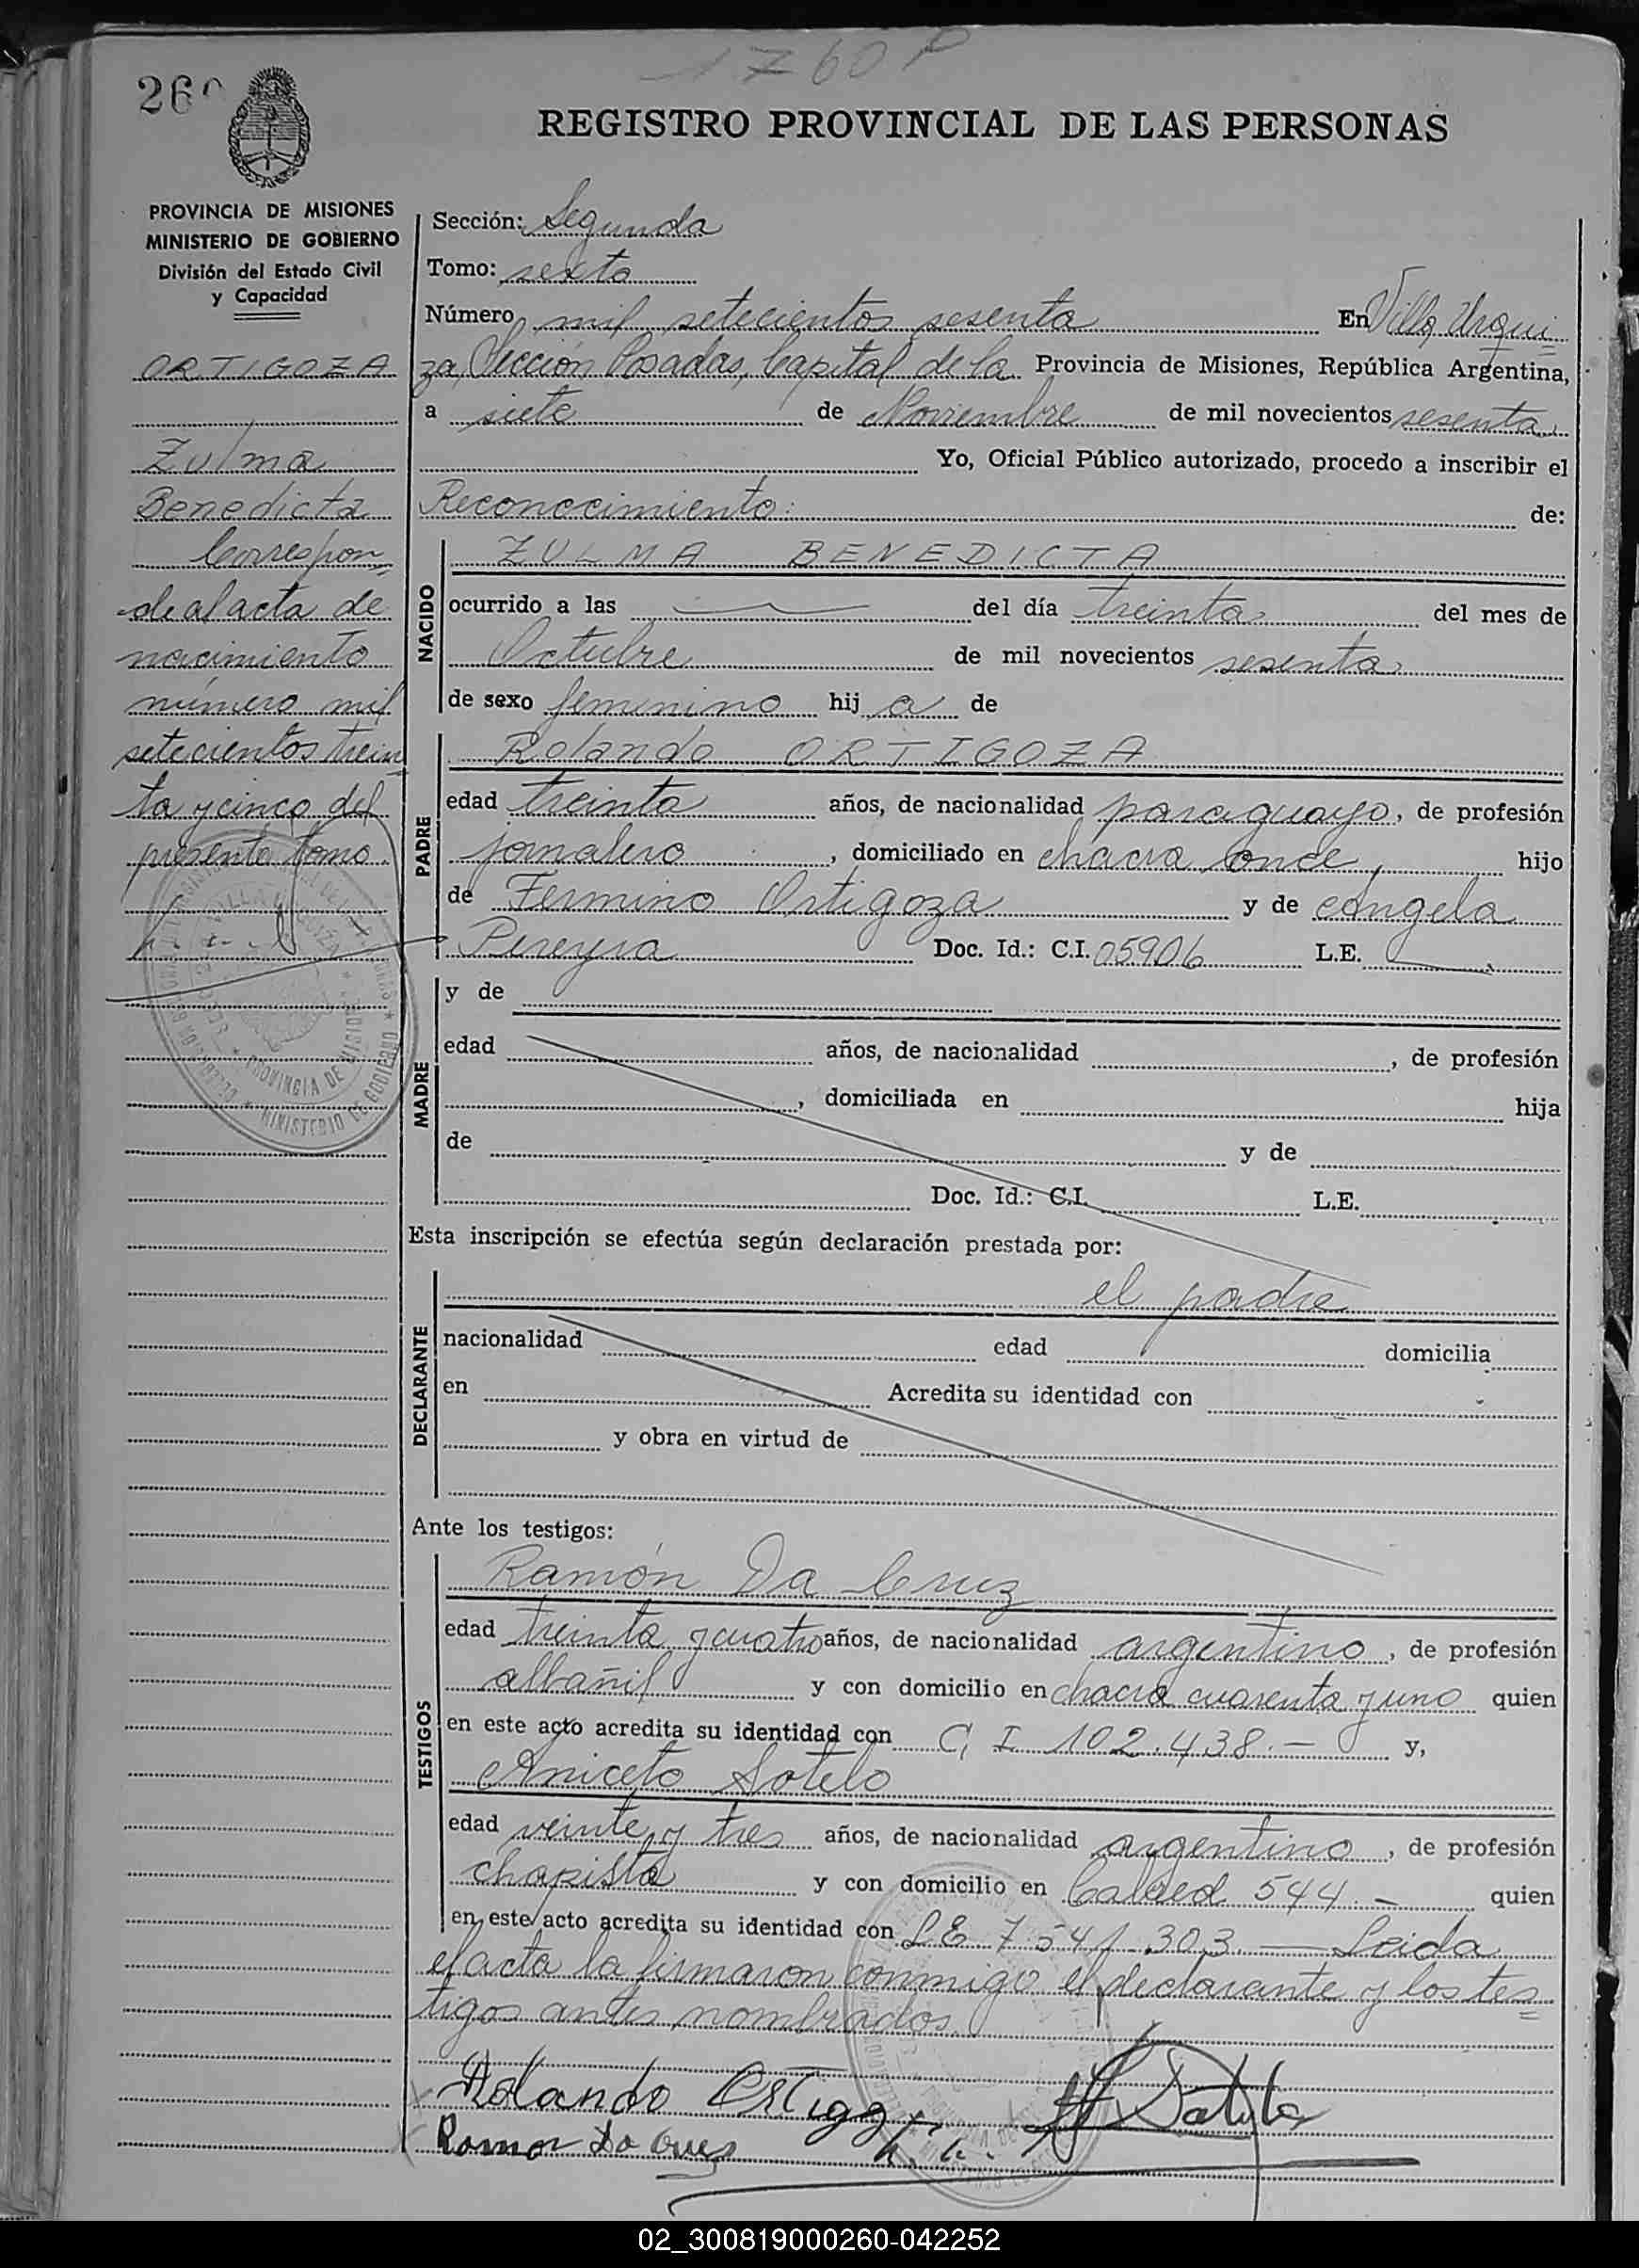 1760 P
260
REGISTRO PROVINCIAL DE LAS PERSONAS
PROVINCIA DE MISIONES
MINISTERIO DE GOBIERNO
División del Estado Civil
y Capacidad
ORTIGOZA
Zulma
Benedicta
Correspon
de al acta de
nacimiento
número mil
setecientos trein
ta y cinco del
presente tomo.
Sección: Segunda
Tomo: sexto
Número mil setecientos sesenta En Villa Urqui=
za, Sección Posadas, Capital de la Provincia de Misiones, República Argentina,
a siete de Noviembre de mil novecientos sesenta
Yo, Oficial Público autorizado, procedo a inscribir el
Reconocimiento: de:
NACIDO
ZULMA BENEDICTA
ocurrido a las del día treinta del mes de
Octubre de mil novecientos sesenta
de sexo femenino hij a de
PADRE
Rolando ORTIGOZA
edad treinta años, de nacionalidad paraguayo, de profesión
jornalero, domiciliado en chacra once, hijo
de Fermino Ortigoza y de Angela
Pereyra Doc. Id.: C.I. 05906 L.E.
MADRE
y de
edad años, de nacionalidad , de profesión
, domiciliada en hija
de y de
Doc. Id.: C.I. L.E.
Esta inscripción se efectúa según declaración prestada por:
DECLARANTE
el padre
nacionalidad edad domicilia
en Acredita su identidad con
y obra en virtud de
Ante los testigos:
TESTIGOS
Ramón Da Cruz
edad treinta y cuatro años, de nacionalidad argentino, de profesión
albañil y con domicilio en chacra cuarenta y uno quien
en este acto acredita su identidad con C I 102.438.— y,
Aniceto Sotelo
edad veinte y tres años, de nacionalidad argentino, de profesión
chapista y con domicilio en 544.— quien
en este acto acredita su identidad con LE 7.541.303.— Leida
el acta la firmaron conmigo el declarante y los tes=
tigos antes nombrados.
Rolando Ortigoza
Ramon Da Cruz
02_300819000260-042252